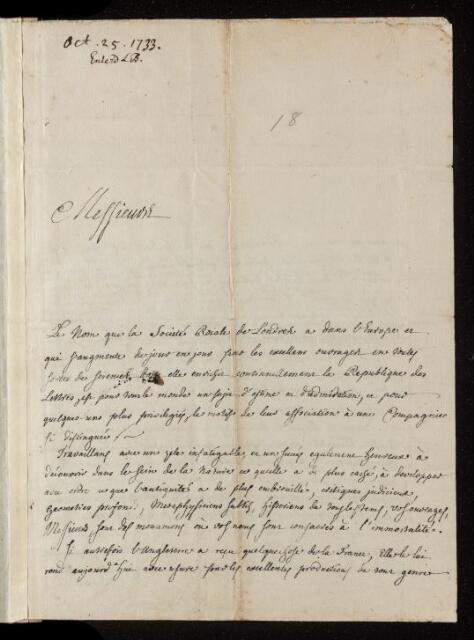 Oct. 25. 1733.
Enterd L.B.
18
Messieurs
Le Nom que la Societé Roiale de Londres a dans l'Europe et
qui s'augmente de jour en jour par les excellens ouvrages en toutes
sortes de sciences dont elle enrichit continuellement la Republique des
Lettres, est pour tout le monde un sujet d'estime et d'admiration, et pour
quelques-uns plus privilegiés, le motif de leur association à une Compagnie
si distinguée.
Travaillans avec une zele infatigable, et un succès egalement heureux à
découvrir dans le sein de la Nature ce qu'elle a de plus caché, à developper
ce que l'antiquité a de plus embrouillé, critiques judicieux,
Geometres profons, Metaphysiciens subtils, historiens de tous les tems, vos ouvrages,
Messieurs sont des monumens où vos noms sont consacrés à l'immortalité.
Si autrefois l'Angleterre a reçu quelque chose de la France, Elle le lui
rend aujourd'hui avec usure par les excellentes productions de tout genre